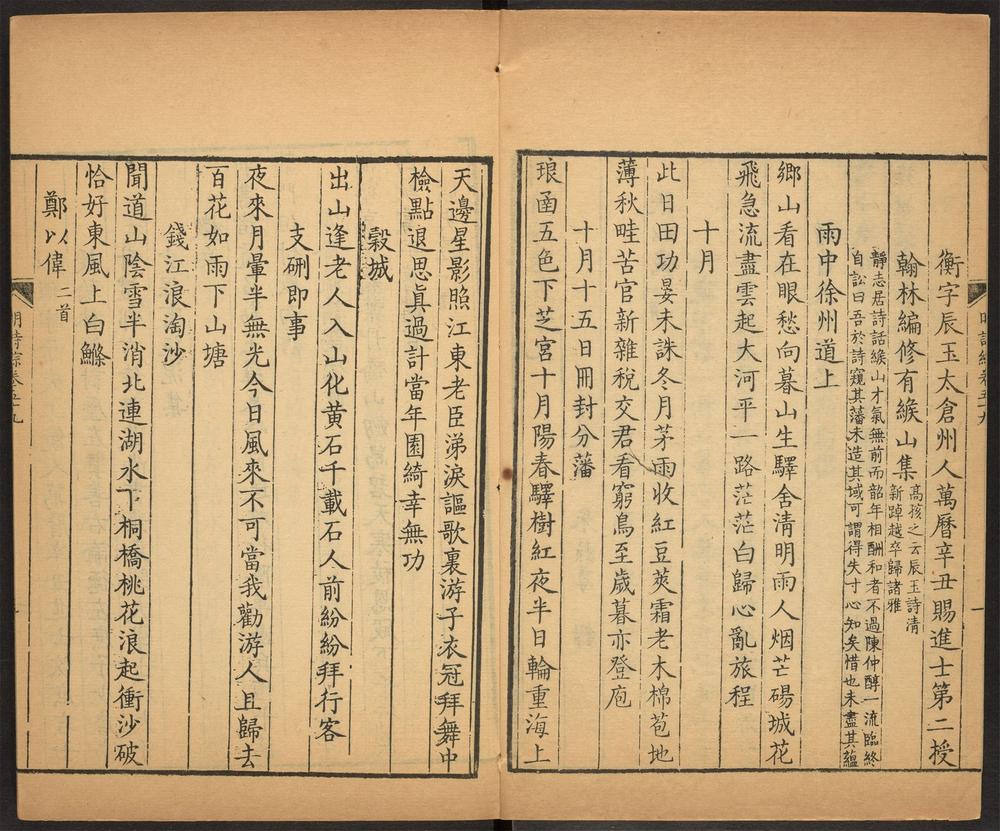 衡字辰玉太倉州人萬曆辛丑賜進士第二授
翰林編修有緱山集
高孩之云辰玉詩清
新踔越卒歸諸雅
靜志居詩話緱山才氣無前而韶年相酬和者不過陳仲醇一流臨終
自訟曰吾於詩窺其藩未造其域可謂得失寸心知矣惜也未盡其蘊
雨中徐州道上
鄉山看在眼愁向暮山生驛舍清明雨人烟芒碭城花
飛急流盡雲起大河平一路茫茫白歸心亂旅程
十月
此日田功晏未誅冬月茅雨收紅豆莢霜老木棉苞地
薄秋畦苦官新雜稅交君看窮鳥至歲暮亦登庖
十月十五日冊封分藩
琅函五色下芝宮十月陽春驛樹紅夜半日輪重海上
天邊星影照江東老臣涕淚謳歌裏游子衣冠拜舞中
檢點退思眞過計當年園綺幸無功
穀城
出山逢老人入山化黃石千載石人前紛紛拜行客
支硎即事
夜來月暈半無光今日風來不可當我勸游人且歸去
百花如雨下山塘
錢江浪淘沙
聞道山陰雪半消北連湖水下桐橋桃花浪起衝沙破
恰好東風上白鰷
鄭以偉二首
明詩綜卷五十九